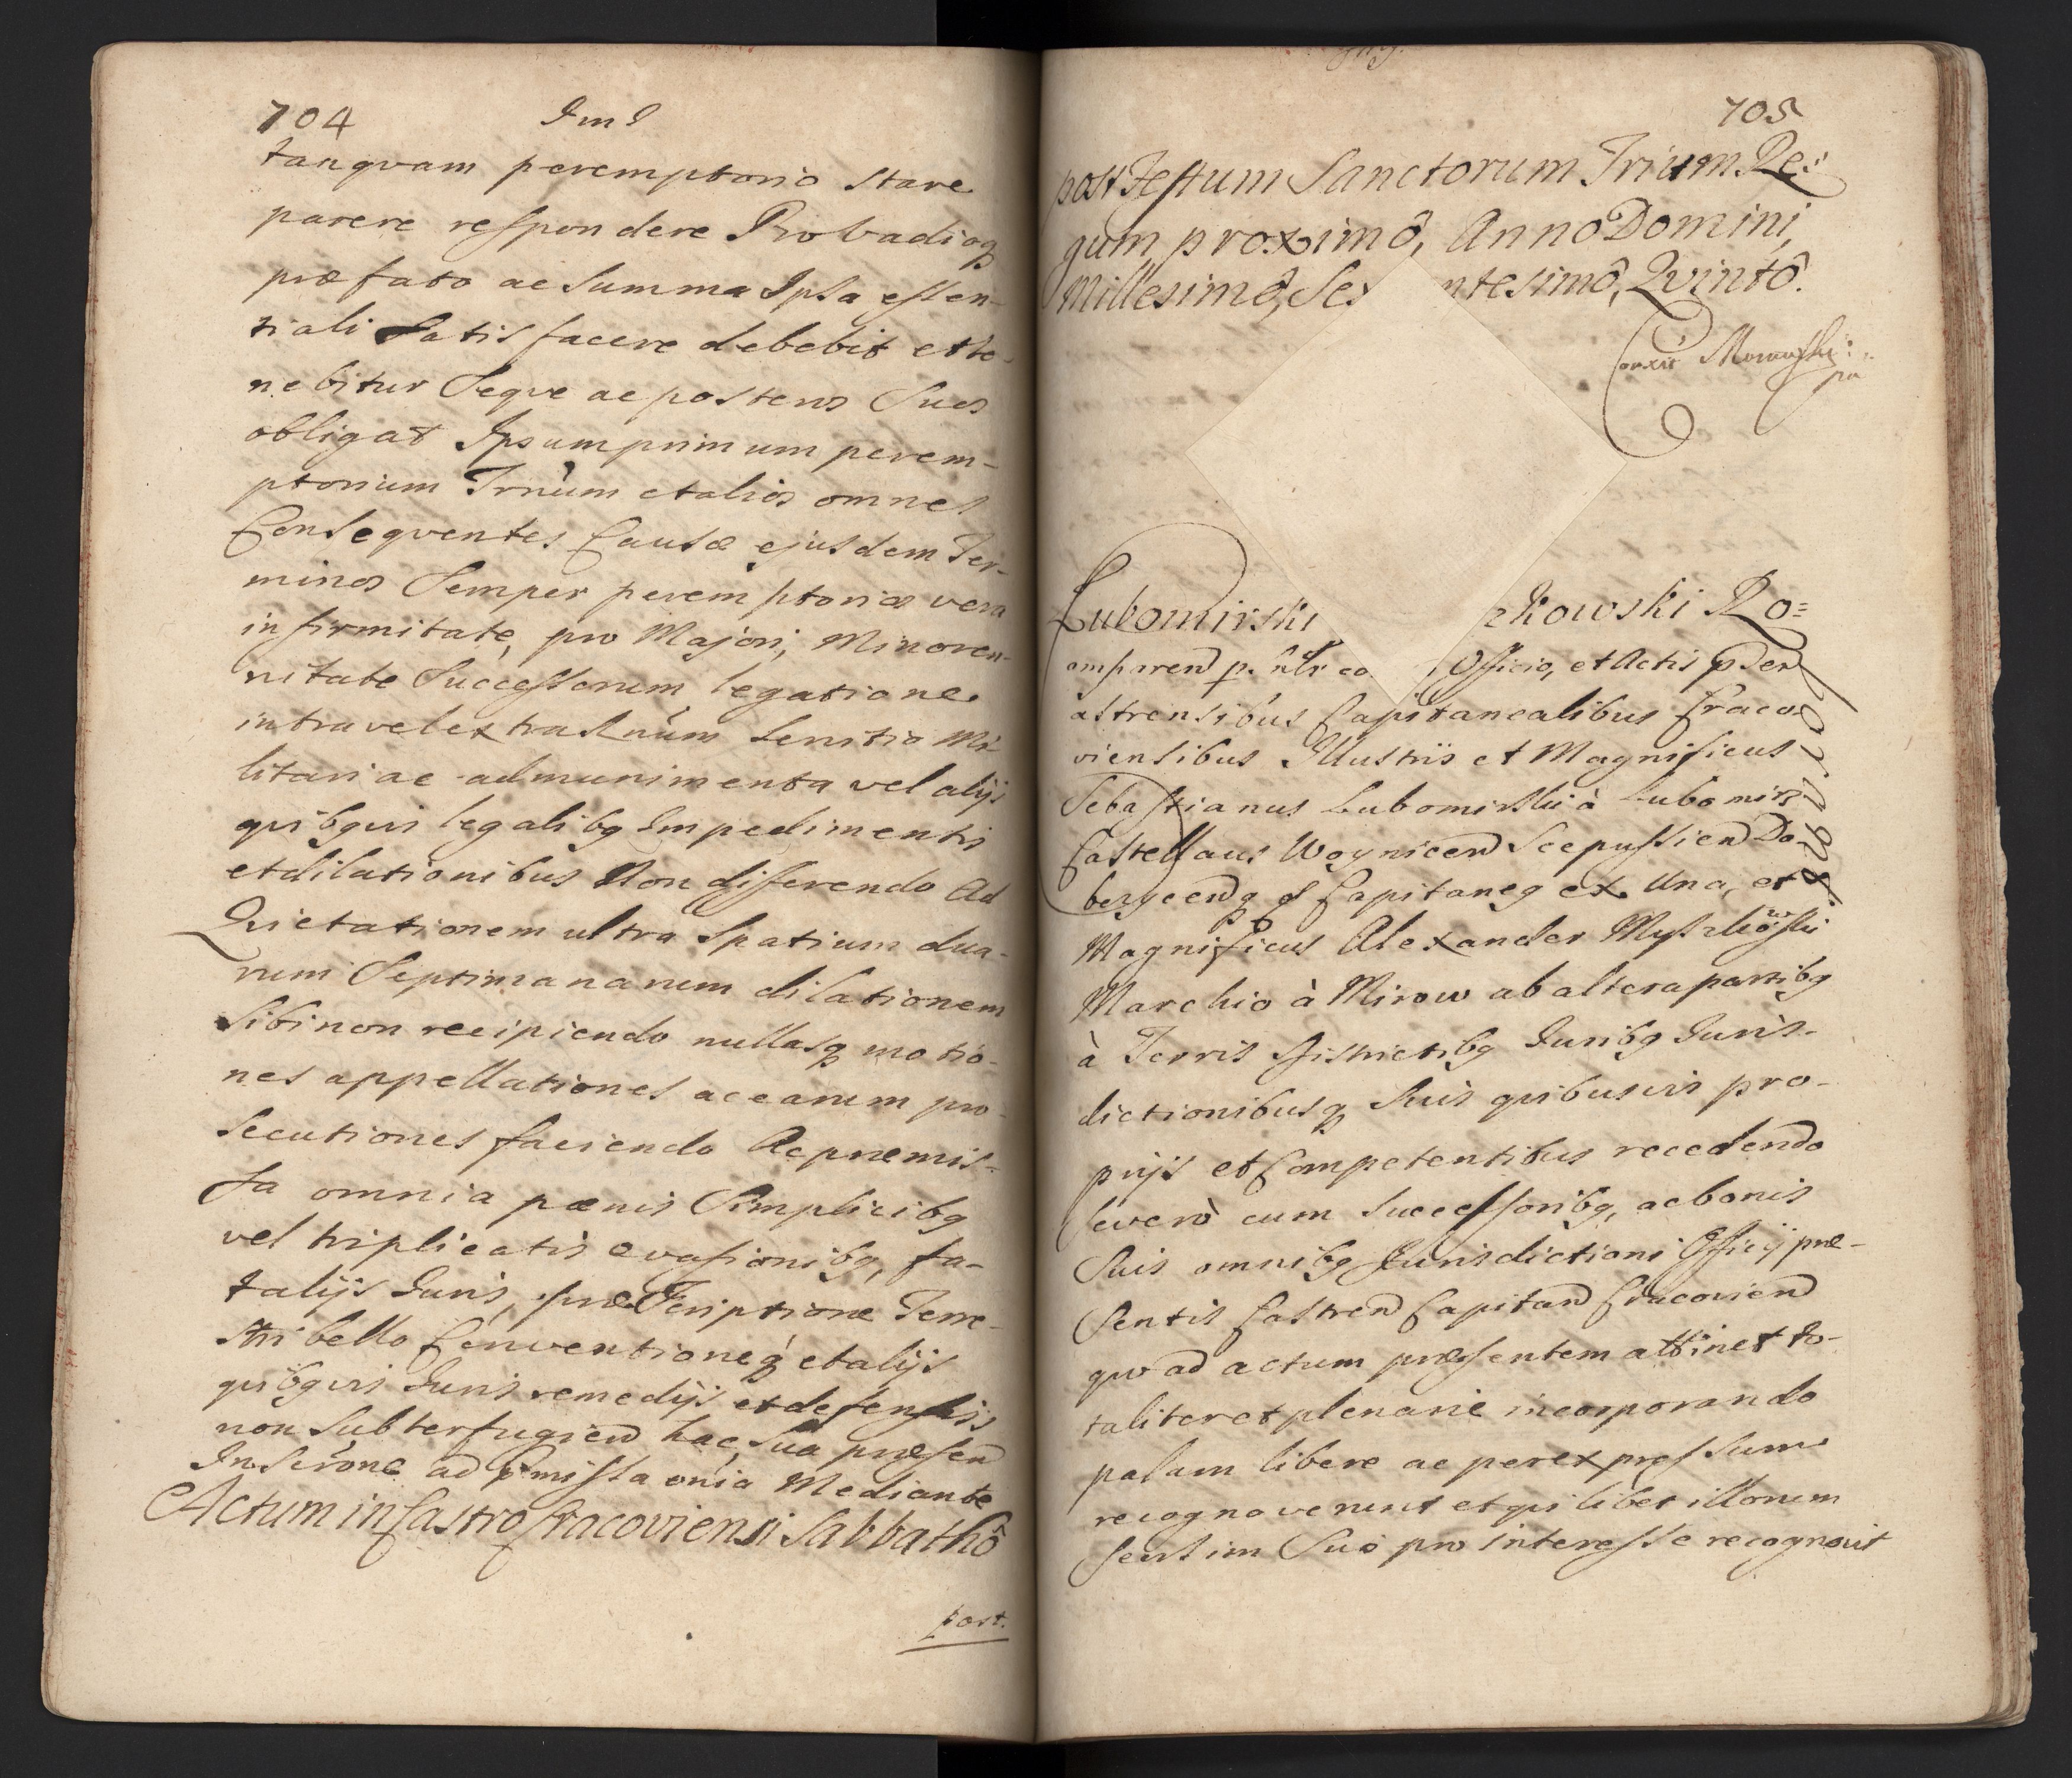 704 Imd
tanqvam peremptorio stare
parere respondere Pro vadioq
præfato ac summa Ipsa essen-
tiali satisfacere debebit et te-
nebitur Seqve ac posteros Suos
obligat Ipsum primum perem-
ptorium Trnum et alios omnes
Conseqventes Causæ ejusdem Ter-
minos Semper peremptorios vera
infirmitate, pro Majori, Minoren-
nitate Successorum legatione
intra vel extra Rnum Servitio Mi-
litari ac ad munimenta vel alijs
qvibqvis legalibq Impedimentis
et dilationibus Non differendo Ad
Qvietationem ultra spatium dua-
rum Septimanarum dilationem
sibi non recipiendo nullasq motio-
nes appellationes ac earum pro-
secutiones faciendo Ac præmis-
sa omnia pænis Simplicibq
vel triplicatis evasionibq, fa-
talijs Juris, præscriptione Terre-
stri bello Conventioneq et alijs
qvibqvis Juris remedijs et defensis
non subterfugien hac sua præsen
Inscrone ad pmissa onia Mediante
Actum in Castro Cracoviensi Sabbathô
post.
705
post Festum Sanctorum Trium Re=
gum proximô, Anno Domini,
Millesimô, Sex ntesimô, Qvintô.
Lubomirski zkowski Ro=
omparen p. Officio, et Actis pden
astrensibus Capitanealibus Craco
viensibus Illustris et Magnificus
Sebastianus Lubomirski à Lubomirz
Castellanus Woynicen Scepussien Do-
bczycenq Capitaneq ex Una, et
Magnificus Alexander Myszkowski
Marchio à Mirow ab altera partibq
à Terris Districtibq Juribq Juris-
dictionibusq suis qvibusvis pro-
prijs et Competentibus recedendo
severò cum successoribq, ac bonis
Suis omnibq Jurisdictioni Officij præ-
sentis Castren Capitan Cracovien
qvo ad actum præsentem attinet to-
taliter et plenarie incorporando
palam libere ac per expressum
recognoverunt et qvilibet illorum
seorsim Suo pro interesse recognovit